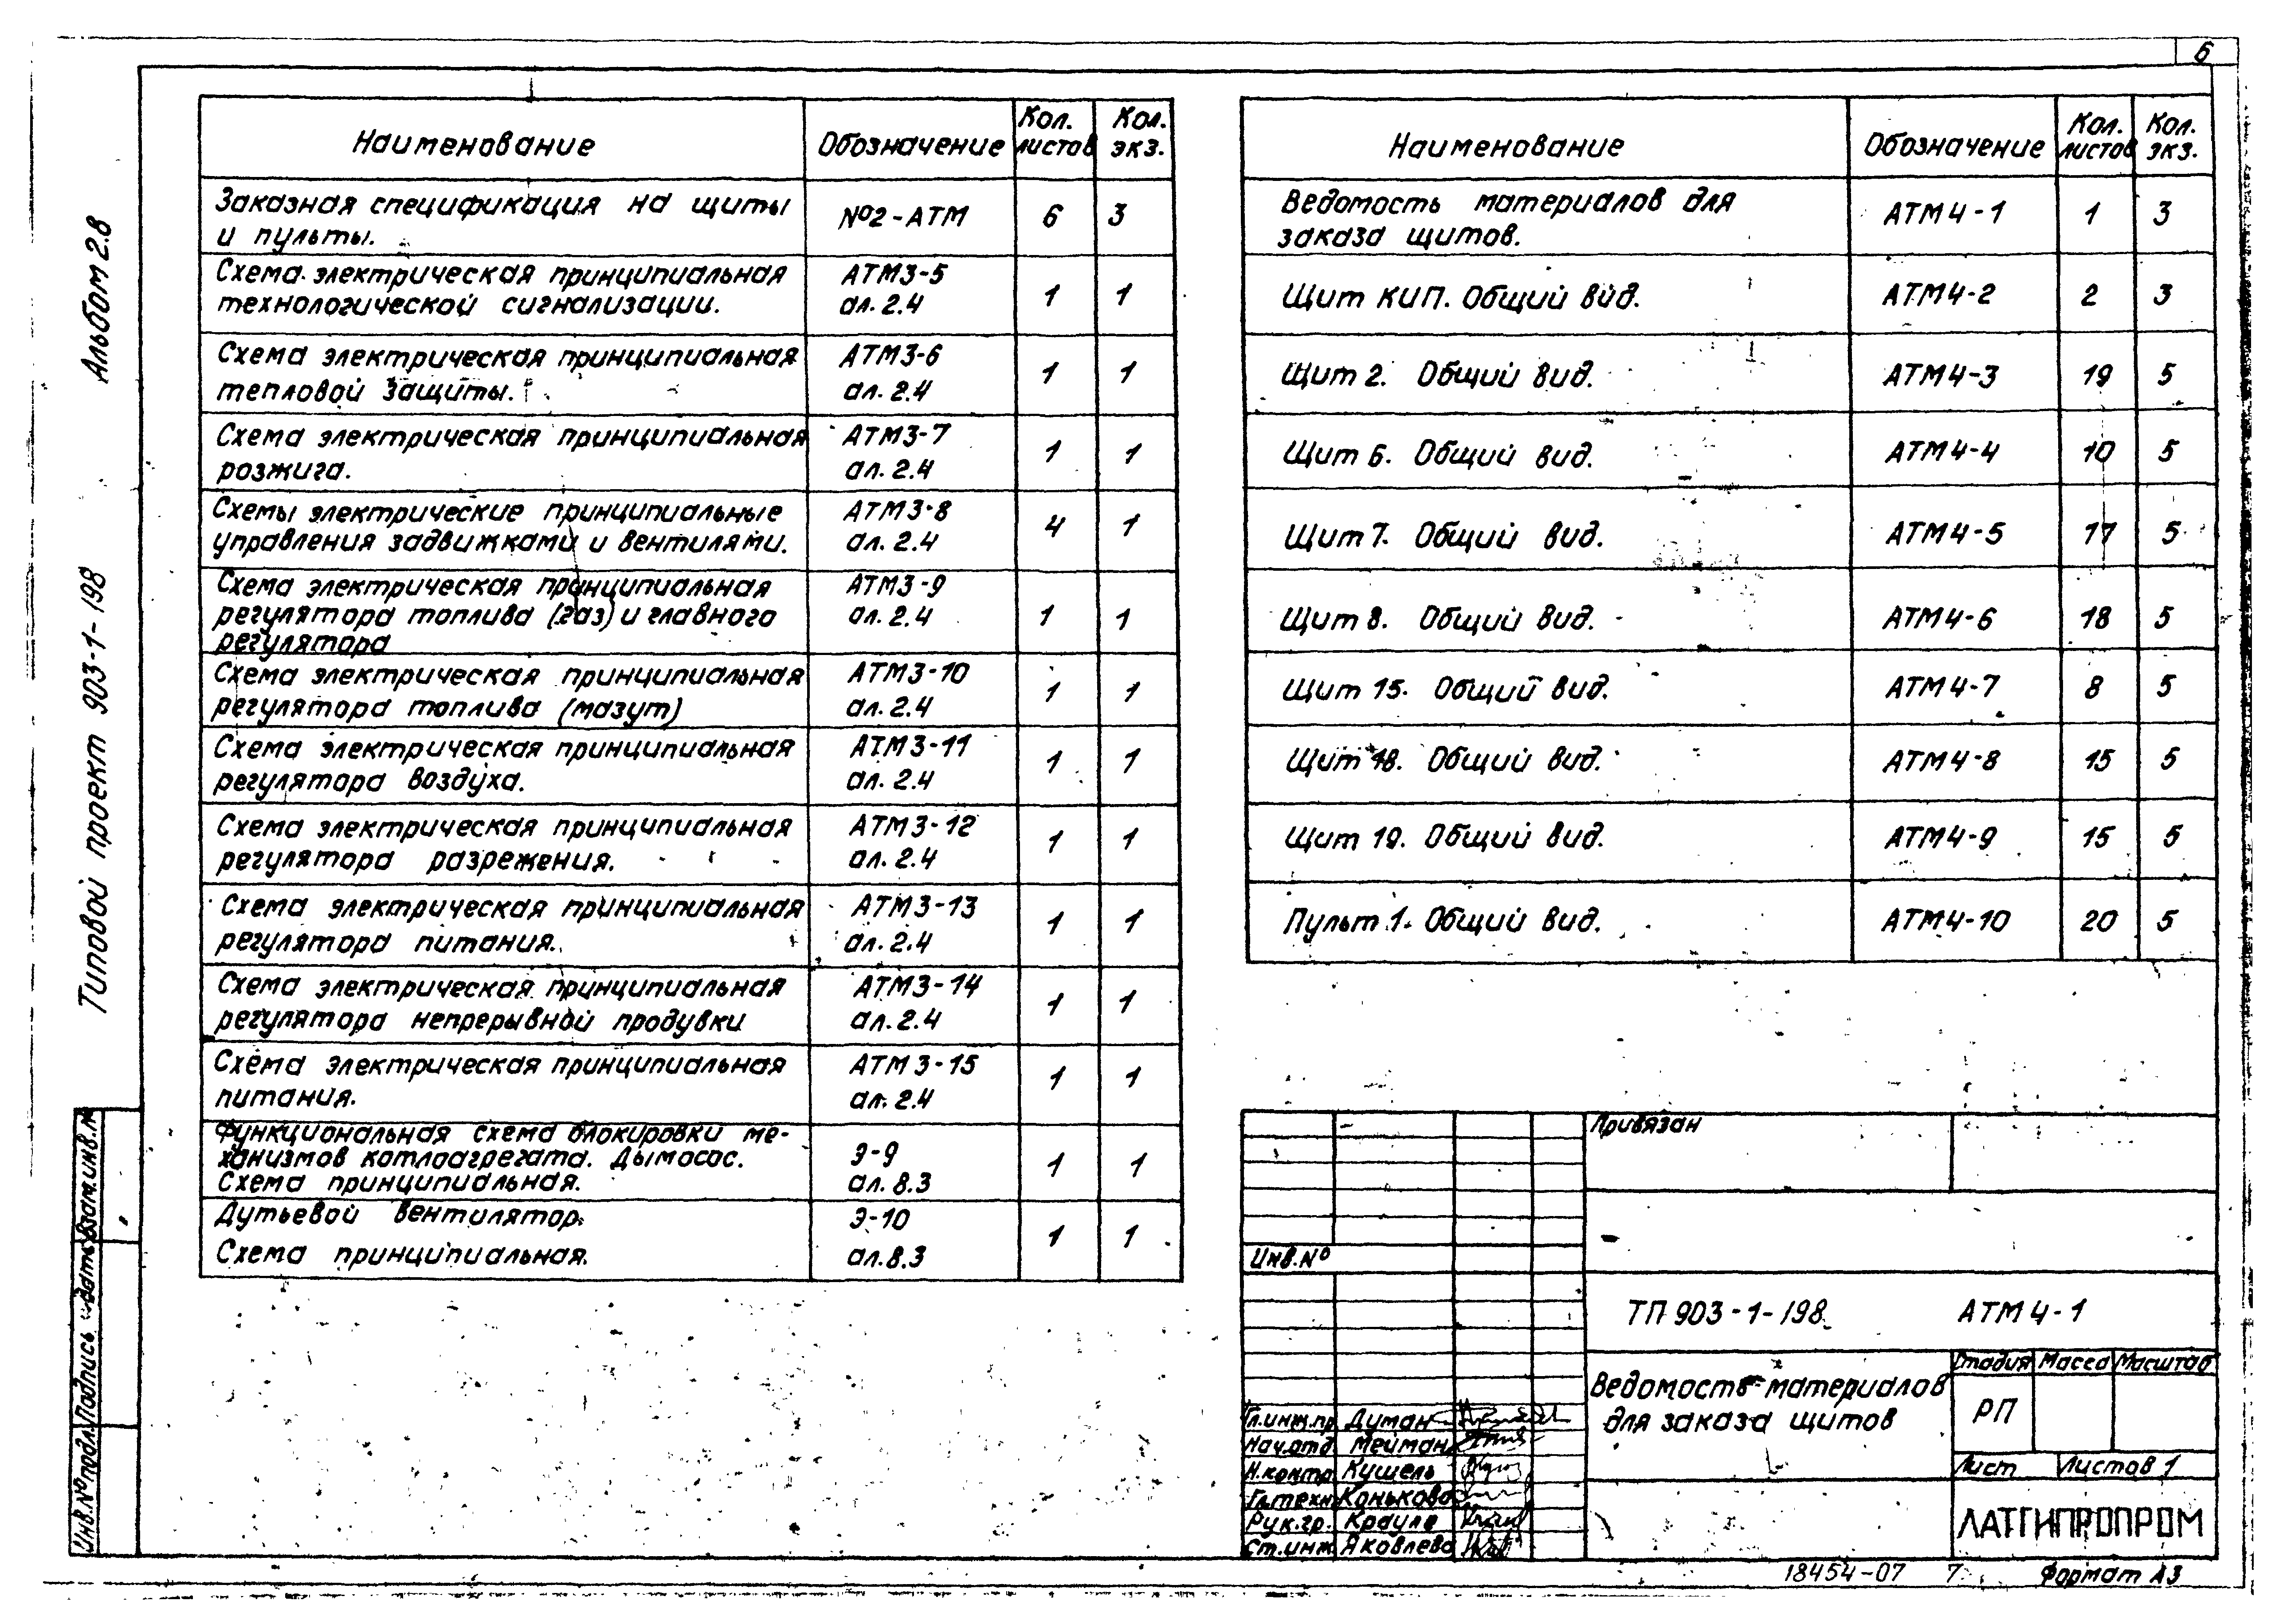 6
Альбом 2.8
Типовой проект 903-1-198
Наименование Обозначение Кол. листов Кол. экз.
Заказная спецификация на щиты
и пульты. №2-АТМ 6 3
Схема электрическая принципиальная АТМ3-5
технологической сигнализации. ал. 2.4 1 1
Схема электрическая принципиальная АТМ3-6
тепловой защиты. ал. 2.4 1 1
Схема электрическая принципиальная АТМ3-7
розжига. ал. 2.4 1 1
Схемы электрические принципиальные АТМ3-8
управления задвижками и вентилями. ал. 2.4 4 1
Схема электрическая принципиальная АТМ3-9
регулятора топлива (газ) и главного ал. 2.4 1 1
регулятора
Схема электрическая принципиальная АТМ3-10
регулятора топлива (мазут) ал. 2.4 1 1
Схема электрическая принципиальная АТМ3-11
регулятора воздуха. ал. 2.4 1 1
Схема электрическая принципиальная АТМ3-12
регулятора разрежения. ал. 2.4 1 1
Схема электрическая принципиальная АТМ3-13
регулятора питания. ал. 2.4 1 1
Схема электрическая принципиальная АТМ3-14
регулятора непрерывной продувки ал. 2.4 1 1
Схема электрическая принципиальная АТМ3-15
питания. ал. 2.4 1 1
Функциональная схема блокировки ме-
ханизмов котлоагрегата. Дымосос. Э-9
Схема принципиальная. ал. 8.3 1 1
Дутьевой вентилятор. Э-10
Схема принципиальная. ал. 8.3 1 1
Наименование Обозначение Кол. листов Кол. экз.
Ведомость материалов для
заказа щитов. АТМ4-1 1 3
Щит КИП. Общий вид. АТМ4-2 2 3
Щит 2. Общий вид. АТМ4-3 19 5
Щит 6. Общий вид. АТМ4-4 10 5
Щит 7. Общий вид. АТМ4-5 17 5
Щит 8. Общий вид. АТМ4-6 18 5
Щит 15. Общий вид. АТМ4-7 8 5
Щит 18. Общий вид. АТМ4-8 15 5
Щит 19. Общий вид. АТМ4-9 15 5
Пульт 1. Общий вид. АТМ4-10 20 5
Привязан
Инв.№
ТП 903-1-198 АТМ4-1
Ведомость материалов
для заказа щитов
Стадия Масса Масштаб
РП
Лист Листов 1
ЛАТГИПРОПРОМ
Гл.инж.пр. Думан
Нач.отд. Мейман
Н.контр. Кушель
Гл.техн. Конькова
Рук.гр. Крауле
Ст.инж. Яковлева
Инв.№подл. Подпись и дата Взам.инв.№
18454-07 7 Формат А3